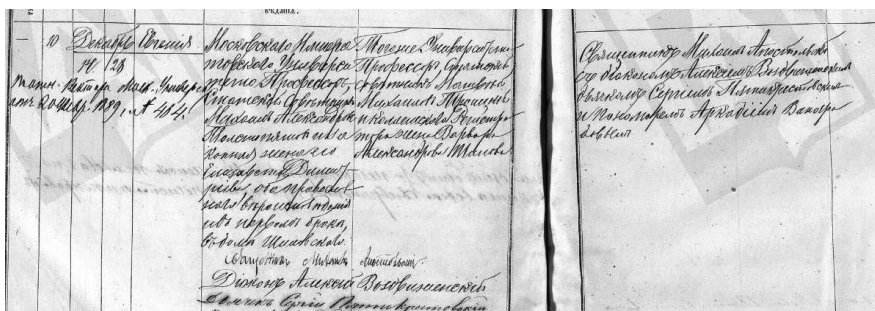 10 Декабрь Евгенія
14 28
Ректора Моск. Универс.
1899, № 404.
Московскаго Импера
торскаго Универси
тета Профессоръ,
Статскій Совѣтникъ
Михаилъ Александровъ
Толстопятовъ и за
конная жена его
Елизавета Димит
ріева, оба православ
наго вѣроисповѣданія
и въ первомъ бракѣ,
въ домѣ
Тогоже Университета
Профессоръ Статскій
совѣтникъ Матвѣй
Михаиловъ Троицкій
и коллежскаго Регистра
тора жена Варвара
Александрова
Священникъ Михаилъ Апостольскій
съ діакономъ Алексѣемъ Воздвиженскимъ
дьячкомъ Сергіемъ
и Пономаремъ Аркадіемъ Виногра
довымъ
Священникъ Михаилъ Апостольскій.
Діаконъ Алексѣй Воздвиженскій
Дьячекъ Сергій